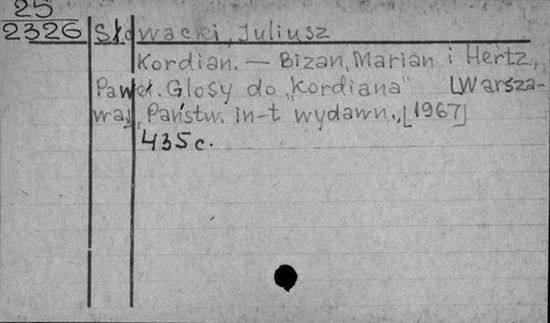 25
2326
Słowacki, Juliusz
Kordian. — Bizan, Marian i Hertz,
Paweł. Glosy do „Kordiana" [Warsza-
wa], Państw. in-t wydawn., [1967]
435 c.